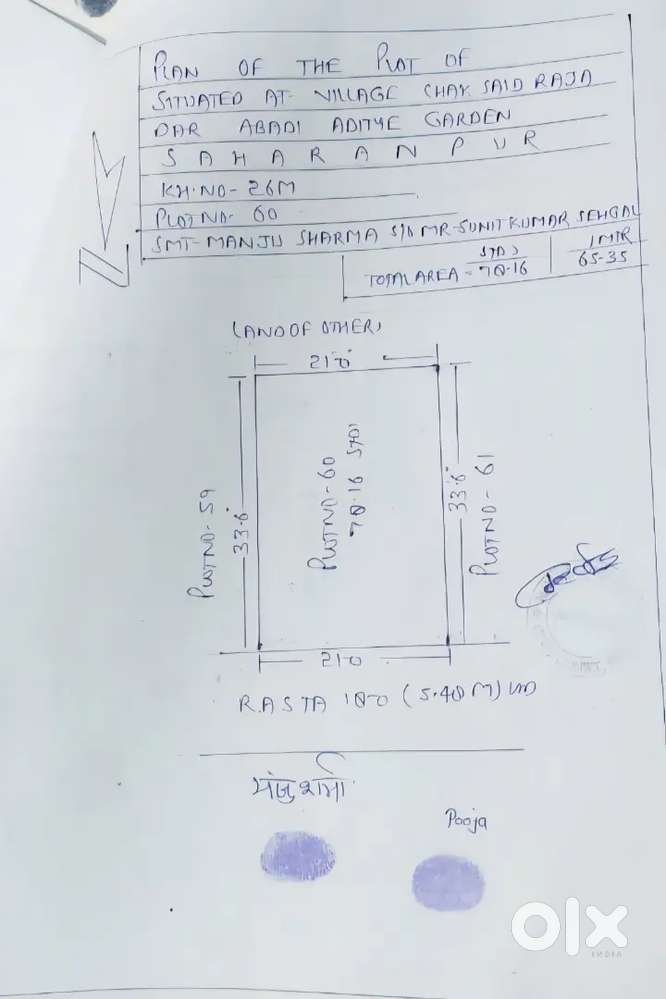 PLAN OF THE PLOT OF
SITUATED AT- VILLAGE CHAK SAID RAJA
DAR ABADI ADITYE GARDEN
SAHARANPUR
KH.NO- 26M
PLOT NO- 60
SMT- MANJU SHARMA S/O MR-SUNIT KUMAR SEHGAL
TOTAL AREA = 78.16
65-35
(LAND OF OTHER)
21'0"
PLOT NO- 59
33.6"
PLOT NO- 60
78.16
33.6"
PLOT NO- 61
21'0
RASTA 18'0 (5.48 M)
मंजु शर्मा
Pooja
olx
INDIA